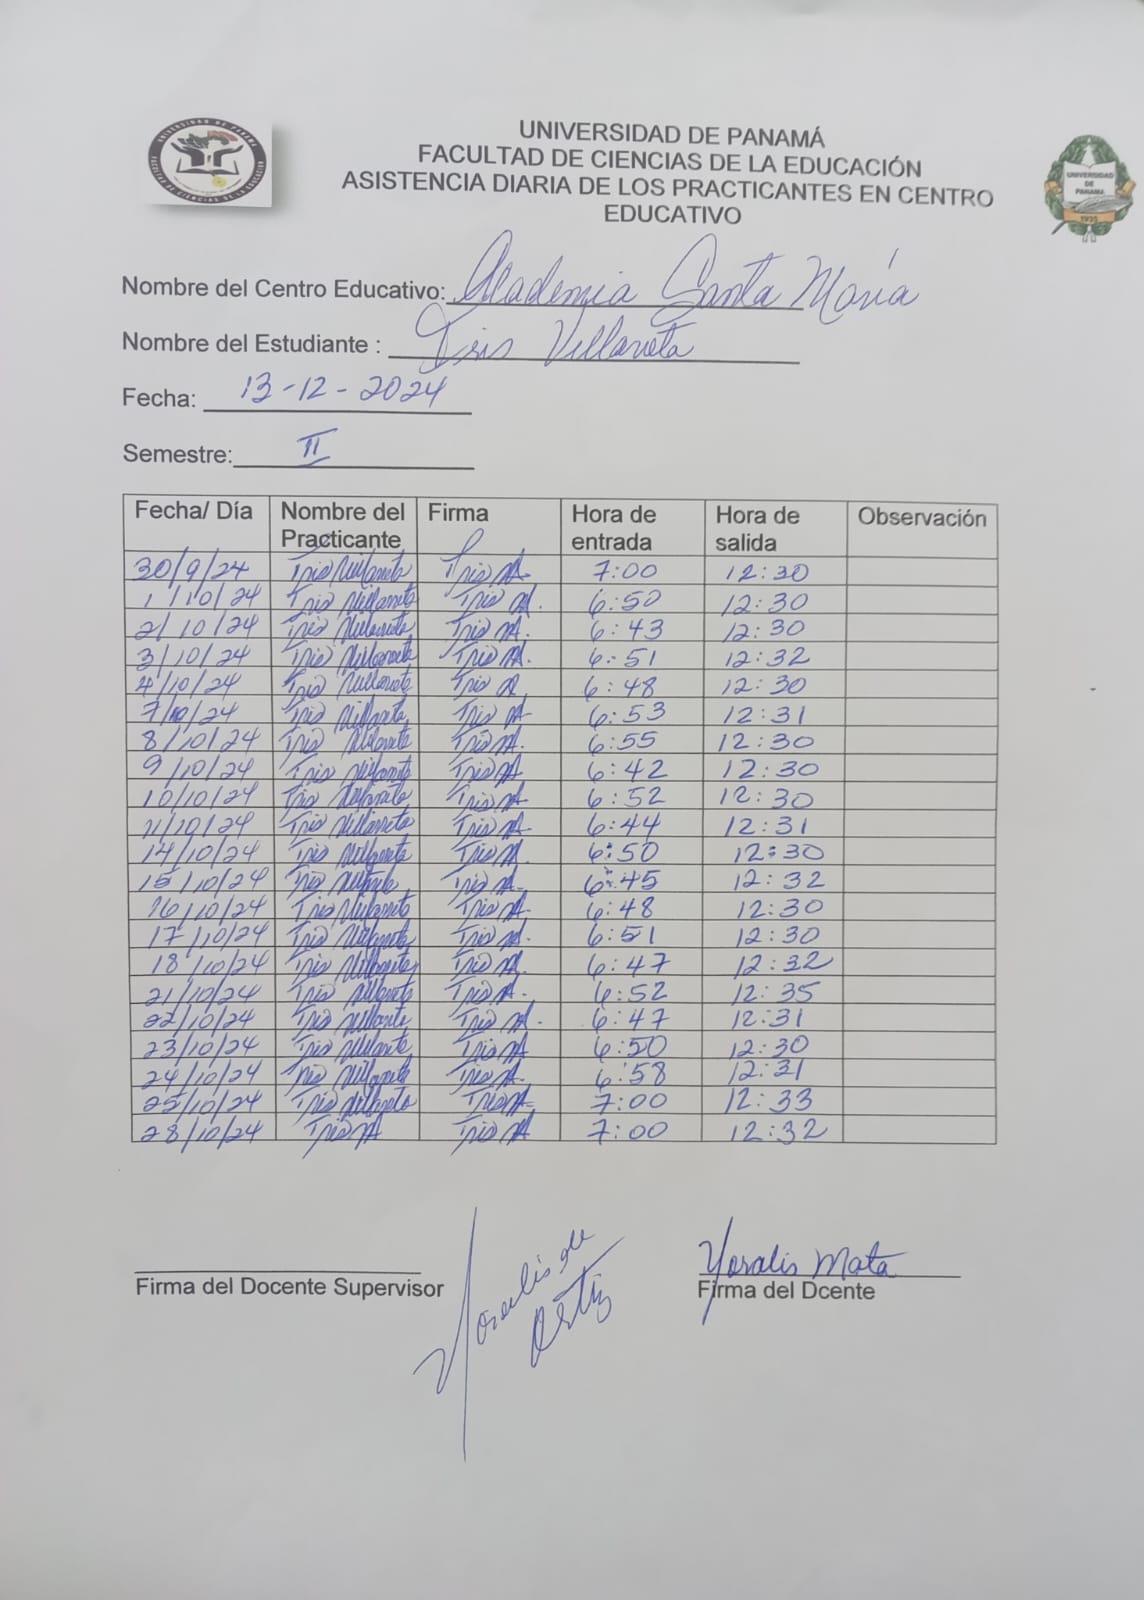 UNIVERSIDAD DE PANAMÁ
FACULTAD DE CIENCIAS DE LA EDUCACIÓN
ASISTENCIA DIARIA DE LOS PRACTICANTES EN CENTRO
EDUCATIVO
UNIVERSIDAD DE PANAMÁ
1935
Nombre del Centro Educativo: Academia Santa María
Nombre del Estudiante : Iris Villarreta
Fecha: 13-12-2024
Semestre: II
Fecha/ Día Nombre del Practicante Firma Hora de entrada Hora de salida Observación
30/9/24 Iris Villarreta Iris 7:00 12:30
1/10/24 Iris Villarreta Iris 6:50 12:30
2/10/24 Iris Villarreta Iris 6:43 12:30
3/10/24 Iris Villarreta Iris 6:51 12:32
4/10/24 Iris Villarreta Iris 6:48 12:30
7/10/24 Iris Villarreta Iris 6:53 12:31
8/10/24 Iris Villarreta Iris 6:55 12:30
9/10/24 Iris Villarreta Iris 6:42 12:30
10/10/24 Iris Villarreta Iris 6:52 12:30
11/10/24 Iris Villarreta Iris 6:44 12:31
14/10/24 Iris Villarreta Iris 6:50 12:30
15/10/24 Iris Iris 6:45 12:32
16/10/24 Iris Villarreta Iris 6:48 12:30
17/10/24 Iris Villarreta Iris 6:51 12:30
18/10/24 Iris Villarreta Iris 6:47 12:32
21/10/24 Iris Villarreta Iris 6:52 12:35
22/10/24 Iris Villarreta Iris 6:47 12:31
23/10/24 Iris Villarreta Iris 6:50 12:30
24/10/24 Iris Villarreta Iris 6:58 12:31
25/10/24 Iris Villarreta Iris 7:00 12:33
28/10/24 Iris Iris 7:00 12:32
Yoralis de
Ortiz
Yoralis Mata
Firma del Docente Supervisor Firma del Dcente